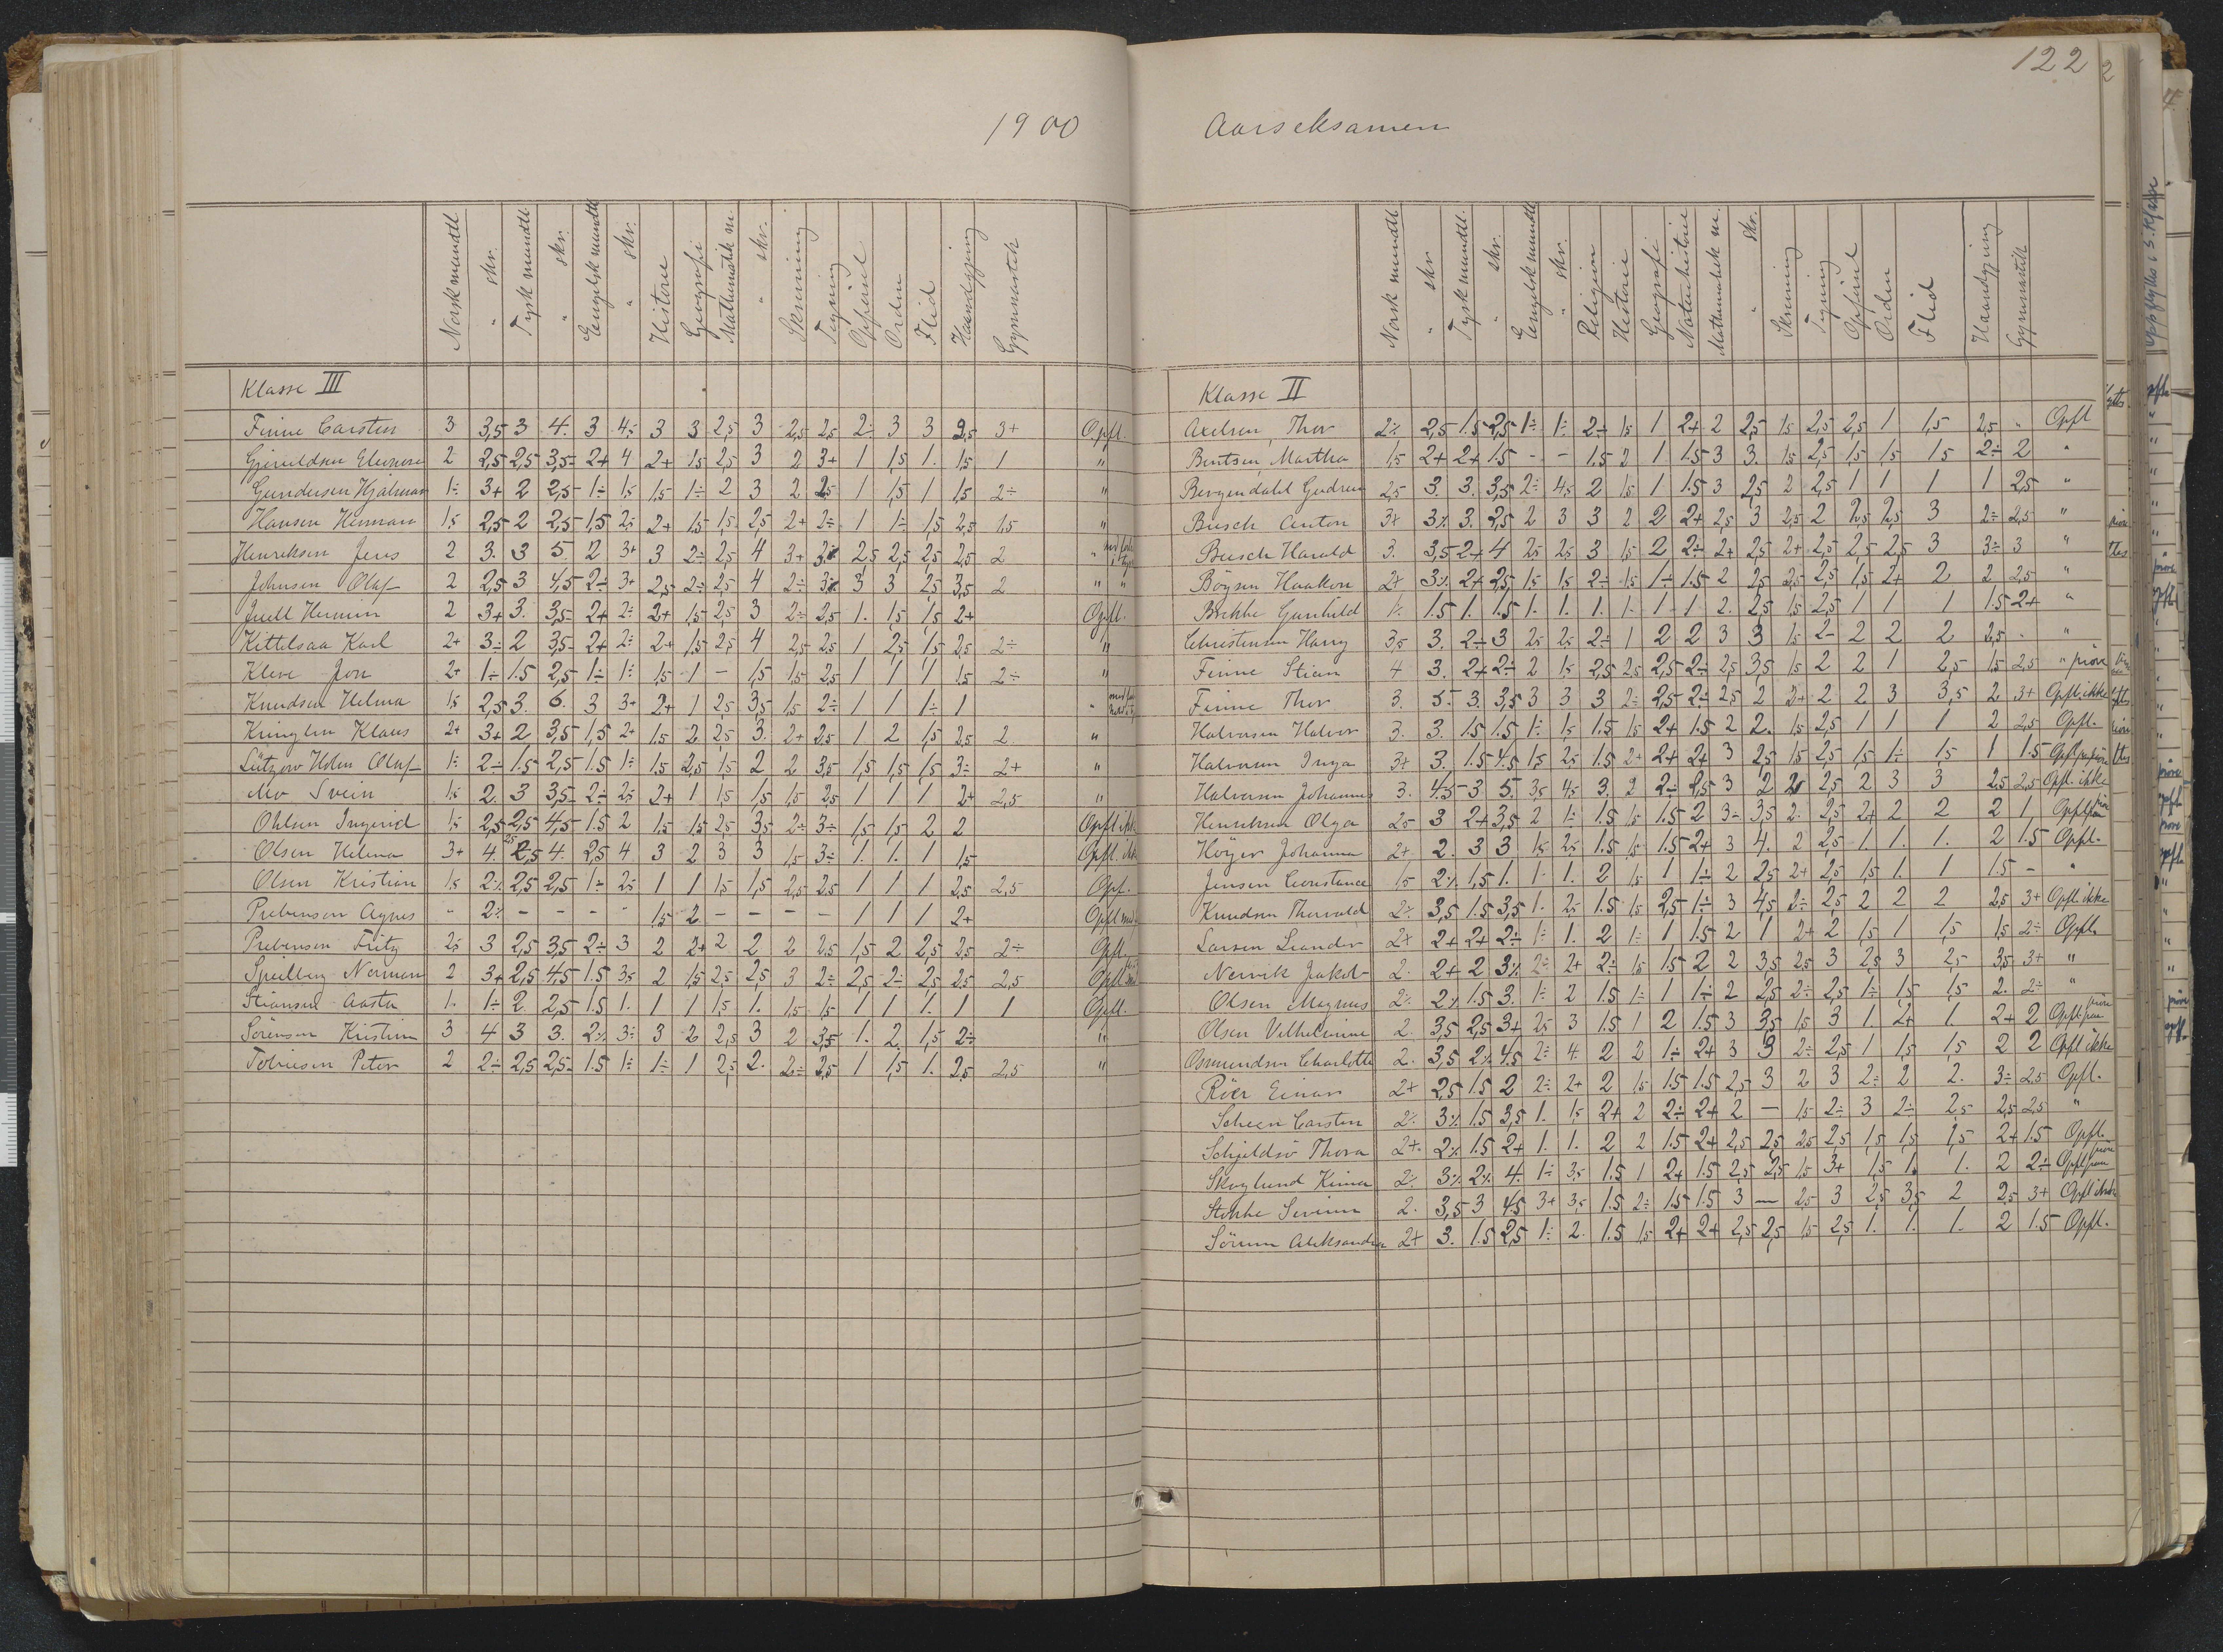 1900
Norsk mundtl. " skr. Tysk mundtl. " skr. Engelsk mundtl " skr. Historie Geografi Mathematik m. " skr. Skrivning Tegning Opførsel Orden Flid Haandgjerning Gymnastik
Klasse III
Finne Carsten 3 3,5 3 4. 3 4÷ 3 3 2,5 3 2,5 2,5 2÷ 3 3 2,5 3+ Opfl.
Gjeruldsen Eleonore 2 2,5 2,5 3,5 2+ 4 2+ 1,5 2,5 3 2 3+ 1 1,5 1. 1,5 1 "
Gundersen Hjalmar 1÷ 3+ 2 2,5 1÷ 1,5 1,5 1÷ 2 3 2 2,5 1 1,5 1 1,5 2÷ "
Hansen Herman 1,5 2,5 2 2,5 1,5 2,5 2+ 1,5 1,5 2,5 2+ 2÷ 1 1÷ 1,5 2,5 1,5 "
Henriksen Jens 2 3. 3 5. 2 3+ 3 2÷ 2,5 4 3+ 2,5 2,5 2,5 2,5 2 "
Johnsen Olaf 2 2,5 3 4,5 2÷ 3+ 2,5 2÷ 2,5 4 2÷ 3 3 2,5 3,5 2 " "
Juell Hermin 2 3+ 3. 3,5 2+ 2÷ 2+ 1,5 2,5 3 2÷ 2,5 1. 1,5 1,5 2+ Opfl.
Kittelsaa Karl 2+ 3÷ 2 3,5 2+ 2÷ 2+ 1,5 2,5 4 2,5 2,5 1 2,5 1,5 2,5 2÷ "
Kleve Jon 2+ 1÷ 1.5 2,5 1÷ 1÷ 1,5 1 – 1,5 1,5 2,5 1 1 1 1,5 2÷ "
Knudsen Helma 1,5 2,5 3. 6. 3 3+ 2+ 1 2,5 3,5 1,5 2÷ 1 1 1÷ 1 "
Kringlen Klaus 2+ 3+ 2 3,5 1,5 2+ 1.5 2 2,5 3. 2+ 2,5 1 2 1,5 2,5 2 "
Lützow Holm Olaf 1÷ 2÷ 1.5 2,5 1.5 1÷ 1.5 2,5 1,5 2 2 3,5 1,5 1,5 1,5 3÷ 2+ "
Mo Svein 1,5 2. 3 3,5 2÷ 2,5 2+ 1 1,5 1,5 1,5 2,5 1 1 1 2+ 2,5 "
Ohlsen Ingerid 1,5 2,5 2,5 4,5 1.5 2 1.5 1,5 2,5 3,5 2÷ 3÷ 1,5 1,5 2 2 Opfl ikke
Olsen Helma 3+ 4. 2,5 4. 2,5 4 3 2 3 3 1,5 3÷ 1. 1. 1 1,5 Opfl. ikke
Olsen Kristian 1,5 2% 2,5 2,5 1÷ 2,5 1 1 1,5 1,5 2,5 2,5 1 1 1 2,5 2,5 Opf.
Prebensen Agnes " 2% – – – " 1,5 2 – – – – 1 1 1 2+ Opfl
Prebensen Fritz 2,5 3 2,5 3,5 2÷ 3 2 2+ 2 2 2 2,5 1,5 2 2,5 2,5 2÷ Opfl.
Spielberg Norman 2 3+ 2,5 4,5 1.5 3,5 2 1,5 2,5 2,5 3 2÷ 2,5 2÷ 2,5 2,5 2,5 Opfl
Stiansen Aasta 1. 1÷ 2. 2,5 1.5 1. 1 1 1,5 1. 1,5 1,5 1 1 1. 1 1 Opfl.
Sørensen Kristine 3 4 3 3. 2% 3÷ 3 2 2,5 3 2 3,5 1. 2. 1,5 2÷ "
Tobiesen Peter 2 2÷ 2,5 2,5 1.5 1÷ 1÷ 1 2,5 2. 2÷ 2,5 1 1,5 1. 2,5 2,5 "
122
Aarseksamen
Norsk mundtl. " skr. Tysk mundtl. " skr. Engelsk mundtl " skr. Religion Historie Geografi Naturhistorie Mathematik m. " skr. Skrivning Tegning Opførsel Orden Flid Haandgjerning Gymnastik
Klasse II
Axelsen, Thor 2% 2,5 1.5 2,5 1÷ 1÷ 2÷ 1,5 1 2+ 2 2,5 1,5 2,5 2,5 1 1,5 2,5 " Opfl
Bentsen, Martha 1,5 2+ 2+ 1.5 – – 1.5 2 1 1.5 3 3. 1,5 2,5 1,5 1,5 1,5 2÷ 2 "
Bergendahl Gudrun 2,5 3. 3. 3,5 2÷ 4,5 2 1,5 1 1.5 3 2,5 2 2,5 1 1 1 1 2,5 "
Busch Anton 3+ 3% 3. 2,5 2 3 3 2 2 2+ 2,5 3 2,5 2 2,5 2,5 3 2÷ 2,5 "
Busch Harald 3. 3,5 2+ 4 2,5 2,5 3 1,5 2 2÷ 2+ 2,5 2+ 2,5 2,5 2,5 3 3÷ 3 "
Böysen Haakon 2+ 3% 2+ 2,5 1,5 1,5 2÷ 1,5 1÷ 1.5 2 2,5 2,5 2,5 1,5 2+ 2 2 2,5 "
Brekke Gunhild 1÷ 1.5 1. 1.5 1. 1. 1. 1. 1 1 2. 2,5 1,5 2,5 1 1 1 1.5 2+ "
Christensen Harry 3,5 3. 2÷ 3 2,5 2,5 2÷ 1 2 2 3 3 1,5 2- 2 2 2 2,5 . "
Finne Stian 4 3. 2+ 2÷ 2 1,5 2,5 2,5 2,5 2÷ 2,5 3,5 1,5 2 2 1 2,5 1,5 2,5 " prøve
Finne Thor 3. 5. 3. 3,5 3 3 3 2÷ 2,5 2÷ 2,5 2 2+ 2 2 3 3,5 2 3+ Opfl. ikke
Halvorsen Halvor 3. 3. 1.5 1.5 1÷ 1,5 1.5 1,5 2+ 1.5 2 2. 1,5 2,5 1 1 1 2 2,5 Opfl.
Halvorsen Inga 3+ 3. 1.5 4.5 1,5 2,5 1.5 2+ 2+ 2+ 3 2,5 1,5 2,5 1,5 1÷ 1,5 1 1.5 Opfl
Halvorsen Johannes 3. 4.5 3 5. 3,5 4,5 3. 2 2÷ 2,5 3 2 2,5 2 3 3 2,5 2,5 Opfl. ikke
Henriksen Olga 2,5 3 2+ 3,5 2 1÷ 1.5 1,5 1.5 2 3÷ 3,5 2. 2,5 2+ 2 2 2 1 Opfl
Höyer Johanna 2+ 2. 3 3 1,5 2,5 1.5 1,5 1.5 2+ 3 4. 2 2,5 1. 1. 1. 2 1.5 Opfl.
Jensen Constance 1,5 2% 1,5 1. 1. 1. 2 1,5 1 1÷ 2 2,5 2+ 2,5 1,5 1. 1 1.5 – "
Knudsen Thorvald 2% 3,5 1.5 3,5 1. 2,5 1.5 1,5 2,5 1÷ 3 4,5 2÷ 2,5 2 2 2 2,5 3+ Opfl ikke
Larsen Leander 2+ 2+ 2+ 2÷ 1÷ 1. 2 1÷ 1 1.5 2 1 2+ 2 1,5 1 1,5 1,5 2÷ Opfl.
Nervik Jakob 2. 2+ 2 3% 2÷ 2+ 2÷ 1,5 1.5 2 2 3,5 2,5 3 2,5 3 2,5 3,5 3+ "
Olsen Magnus 2% 2% 1.5 3. 1÷ 2 1.5 1÷ 1 1÷ 2 2,5 2÷ 2,5 1÷ 1,5 1,5 2. 2÷ "
Olsen Vilhelmine 2. 3,5 2,5 3+ 2,5 3 1.5 1 2 1.5 3 3,5 1,5 3 1. 2+ 1. 2+ 2 Opfl paa prøve
Osmundsen Charlotte 2. 3,5 2% 4,5 2÷ 4. 2 2 1÷ 2+ 3 3 2÷ 2,5 1 1,5 1,5 2 2 Opfl ikke
Röer Einar 2+ 2,5 1.5 2 2÷ 2+ 2 1,5 1.5 1.5 2,5 3 2 3 2÷ 2 2. 3÷ 2,5 Opfl.
Scheen Carsten 2% 3% 1.5 3,5 1. 1,5 2+ 2 2÷ 2+ 2 – 1,5 2÷ 3 2÷ 2,5 2,5 2,5 "
Schjeldsö Thora 2+ 2% 1.5 2+ 1. 1. 2 2 1.5 2+ 2,5 2,5 2,5 2,5 1,5 1,5 1,5 2+ 1.5 Opfl.
Skoglund Kima 2% 3% 2% 4. 1÷ 3,5 1.5 1 2+ 1.5 2,5 2,5 1,5 3+ 1,5 1. 1. 2 2÷ Opfl paa prøve
Stokke Severin 2. 3,5 3 4,5 3+ 3,5 1.5 2÷ 1.5 1.5 3 – 2,5 3 2,5 3,5 2 2,5 3+ Opfl ikke
Sörum Aleksandra 2+ 3. 1.5 2,5 1÷ 2. 1.5 1,5 2+ 2+ 2,5 2,5 1,5 2,5 1. 1. 1. 2 1.5 Opfl.